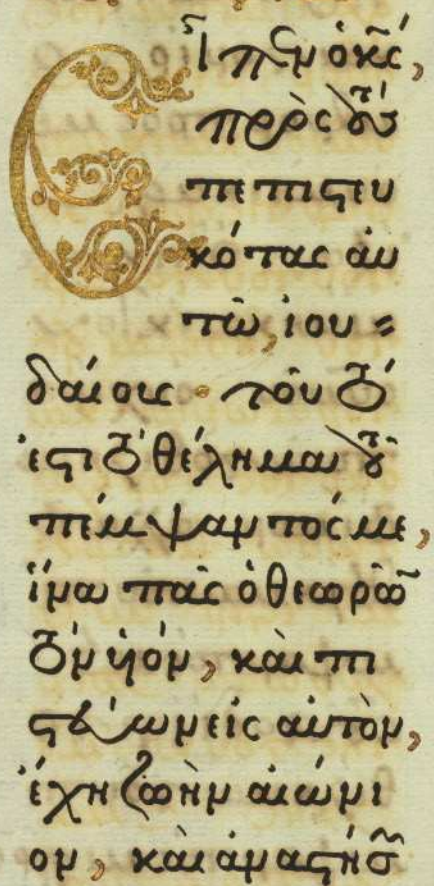 Εἶπεν ὁ κς,
πρὸς τοὺς
πεπιστευ
κότας αυ
τῶ, ἰου=
δαίους · τοῦτό
ἐστι τὸ θέλημα τοῦ
πέμψαντός με,
ἵνα πᾶς ὁ θεωρῶν
τὸν ὑιόν, καὶ πι
στεύων εἰς αὐτὸν,
ἔχη ζωὴν αἰώνι
ον, καὶ ἀναστήσ